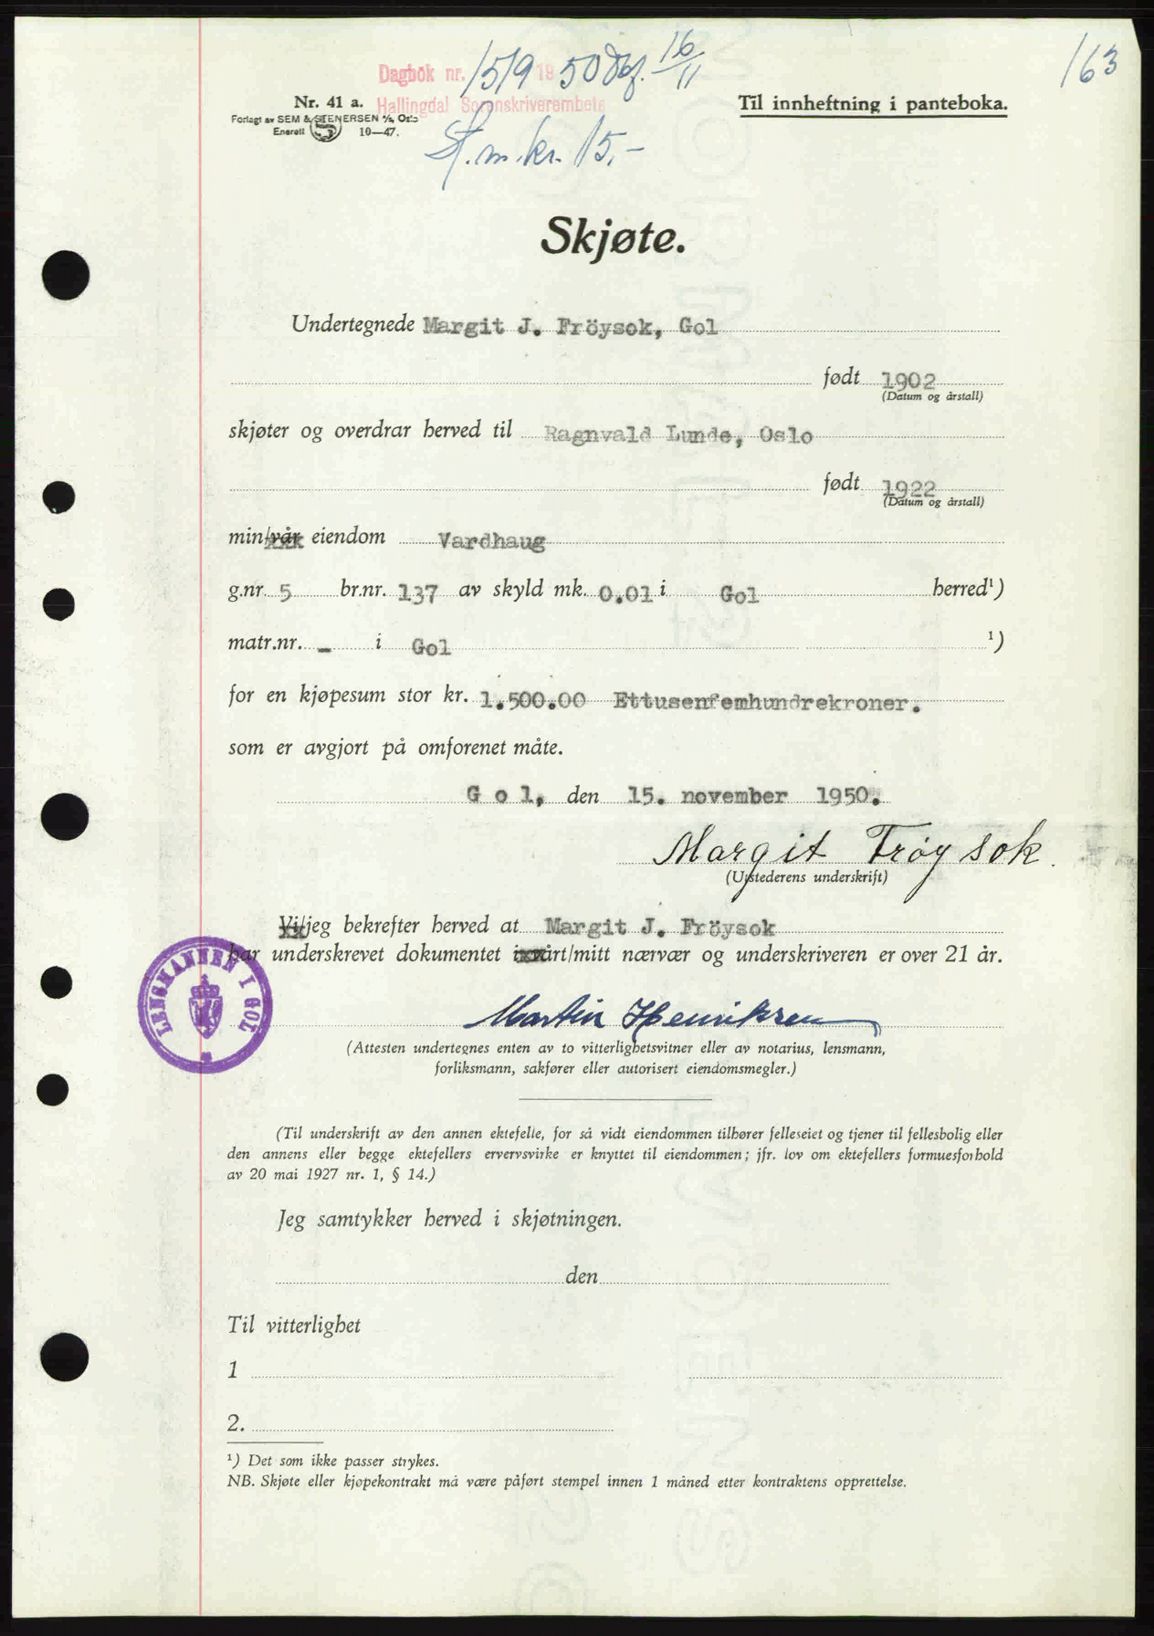 163
Dagbok nr. 1519 1950 Dbf. 16/11
Hallingdal Sorenskriverembete
Nr. 41 a.
Forlagt av SEM & STENERSEN A/S, Oslo
Enerett 10—47.
Til innheftning i panteboka.
St.m.kr. 15.-
Skjøte.
Undertegnede Margit J. Fröysok, Gol
født 1902
(Datum og årstall)
skjøter og overdrar herved til Ragnvald Lunde, Oslo
født 1922
(Datum og årstall)
min/vår eiendom Vardhaug
g.nr. 5 br.nr. 137 av skyld mk. 0.01 i Gol herred¹)
matr.nr. - i Gol ¹)
for en kjøpesum stor kr. 1.500.00 Ettusenfemhundrekroner.
som er avgjort på omforenet måte.
G o l, den 15. november 1950.
Margit Frøysok.
(Utstederens underskrift)
Vi/jeg bekrefter herved at Margit J. Fröysok
har underskrevet dokumentet i vårt/mitt nærvær og underskriveren er over 21 år.
LENSMANNEN I GOL
Martin Henriksen
(Attesten undertegnes enten av to vitterlighetsvitner eller av notarius, lensmann,
forliksmann, sakfører eller autorisert eiendomsmegler.)
(Til underskrift av den annen ektefelle, for så vidt eiendommen tilhører felleseiet og tjener til fellesbolig eller
den annens eller begge ektefellers ervervsvirke er knyttet til eiendommen; jfr. lov om ektefellers formuesforhold
av 20 mai 1927 nr. 1, § 14.)
Jeg samtykker herved i skjøtningen.
den
Til vitterlighet
1
2.
¹) Det som ikke passer strykes.
NB. Skjøte eller kjøpekontrakt må være påført stempel innen 1 måned etter kontraktens opprettelse.